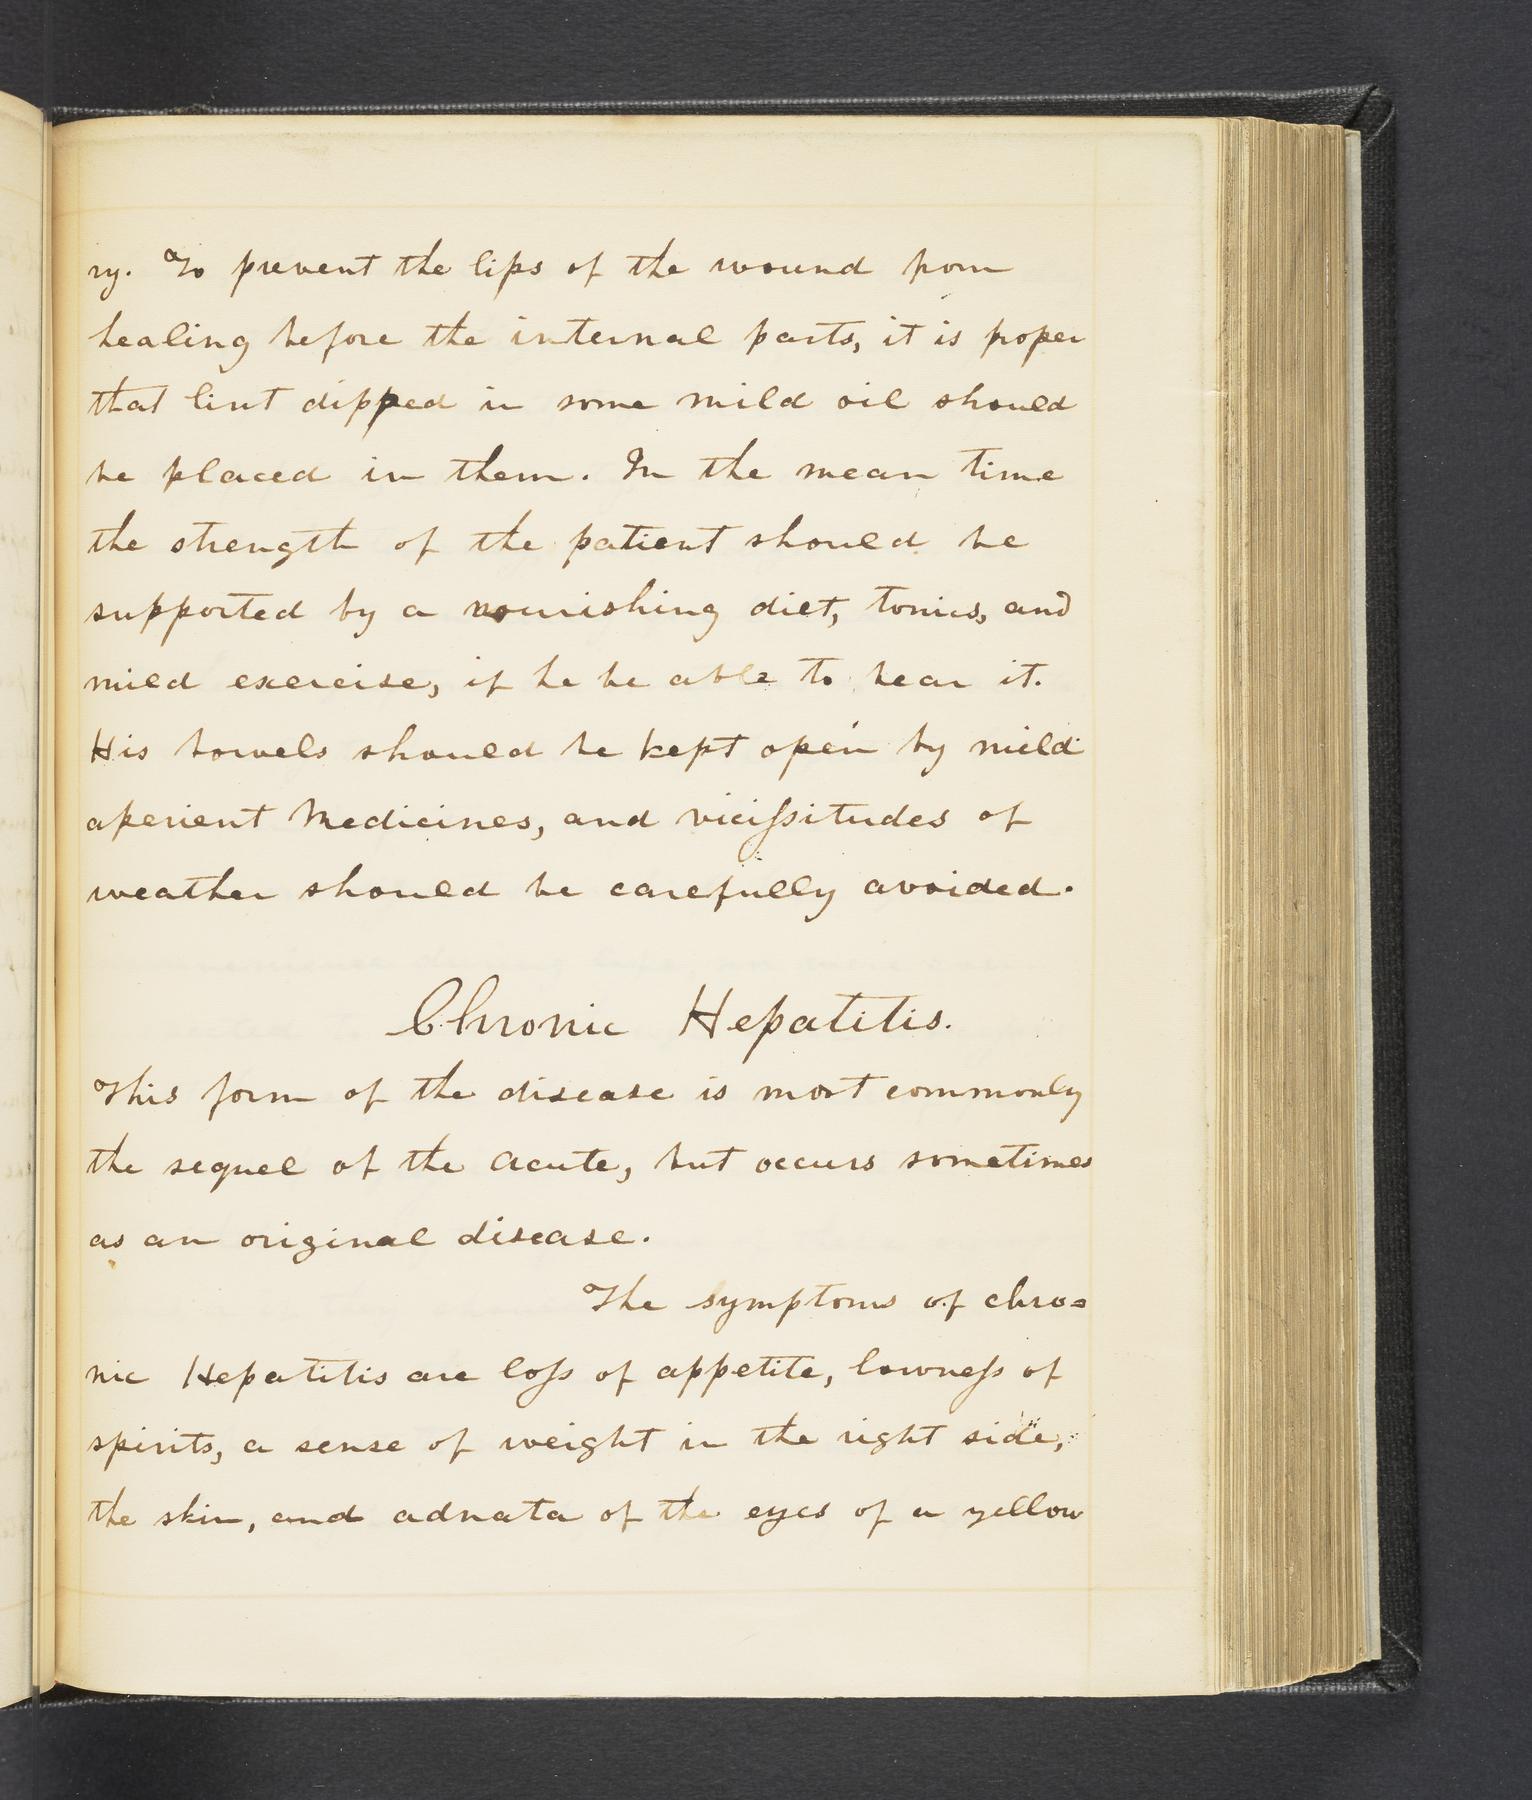 ry. To prevent the lips of the wound from
healing before the internal parts, it is proper
that lint dipped in some mild oil should
be placed in them. In the mean time
the strength of the patient should be
supported by a nourishing diet, tonics, and
mild exercise, if he be able to bear it.
His bowels should be kept open by mild
aperient Medicines, and viciſsitudes of
weather should be carefully avoided.
Chronic Hepatitis.
This form of the disease is most commonly
the sequel of the acute, but occurs sometimes
as an original disease.
The symptoms of chro=
nic Hepatitis are loſs of appetite, lowneſs of
spirits, a sense of weight in the right side,
the skin, and adnata of the eyes of a yellow